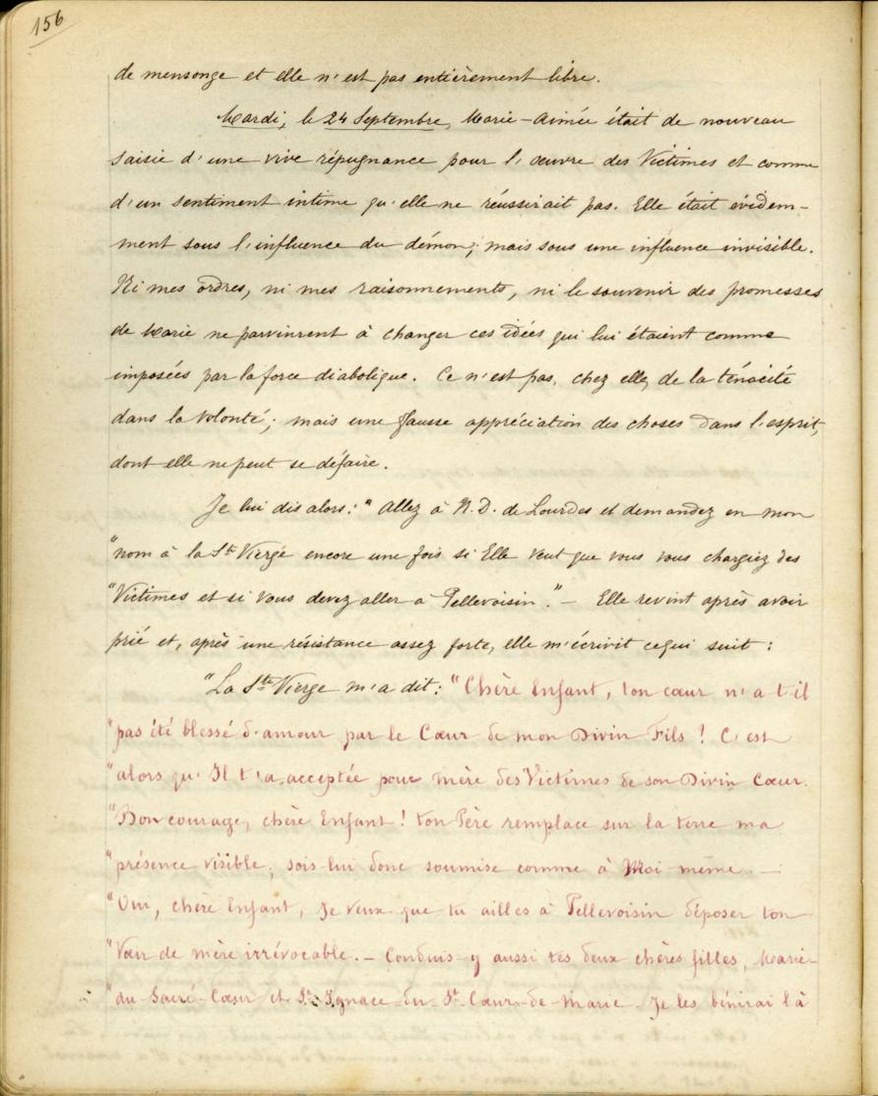 156
de mensonge et elle n'est pas entièrement libre.
Mardi, le 24 Septembre, Marie-Aimée était de nouveau
saisie d'une vive répugnance pour l'œuvre des Victimes et comme
d'un sentiment intime qu'elle ne réussirait pas. Elle était évidem-
ment sous l'influence du démon; mais sous une influence invisible.
Ni mes ordres, ni mes raisonnements, ni le souvenir des promesses
de Marie ne parvinrent à changer ces idées qui lui étaient comme
imposées par la force diabolique. Ce n'est pas, chez elle, de la ténacité
dans la volonté; mais une fausse appréciation des choses dans l'esprit,
dont elle ne peut se défaire.
Je lui dis alors: "Allez à N. D. de Lourdes et demandez en mon
"nom à la Ste Vierge encore une fois si Elle veut que vous vous chargiez des
"Victimes et si vous devez aller à Pellevoisin." — Elle revint après avoir
prié et, après une résistance assez forte, elle m'écrivit ce qui suit:
"La Ste Vierge m'a dit: "Chère Enfant, ton cœur n'a t-il
"pas été blessé d'amour par le Cœur de mon Divin Fils! C'est
"alors qu'Il t'a acceptée pour mère des Victimes de son Divin Cœur.
"Bon courage, chère Enfant! ton Père remplace sur la terre ma
"présence visible; sois-lui donc soumise comme à Moi même. —
"Oui, chère Enfant, Je veux que tu ailles à Pellevoisin déposer ton
"Vœu de mère irrévocable. — Conduis-y aussi tes deux chères filles, Marie-
"du-Sacré-Cœur et St Ignace-du-St-Cœur-de-Marie. Je les bénirai là